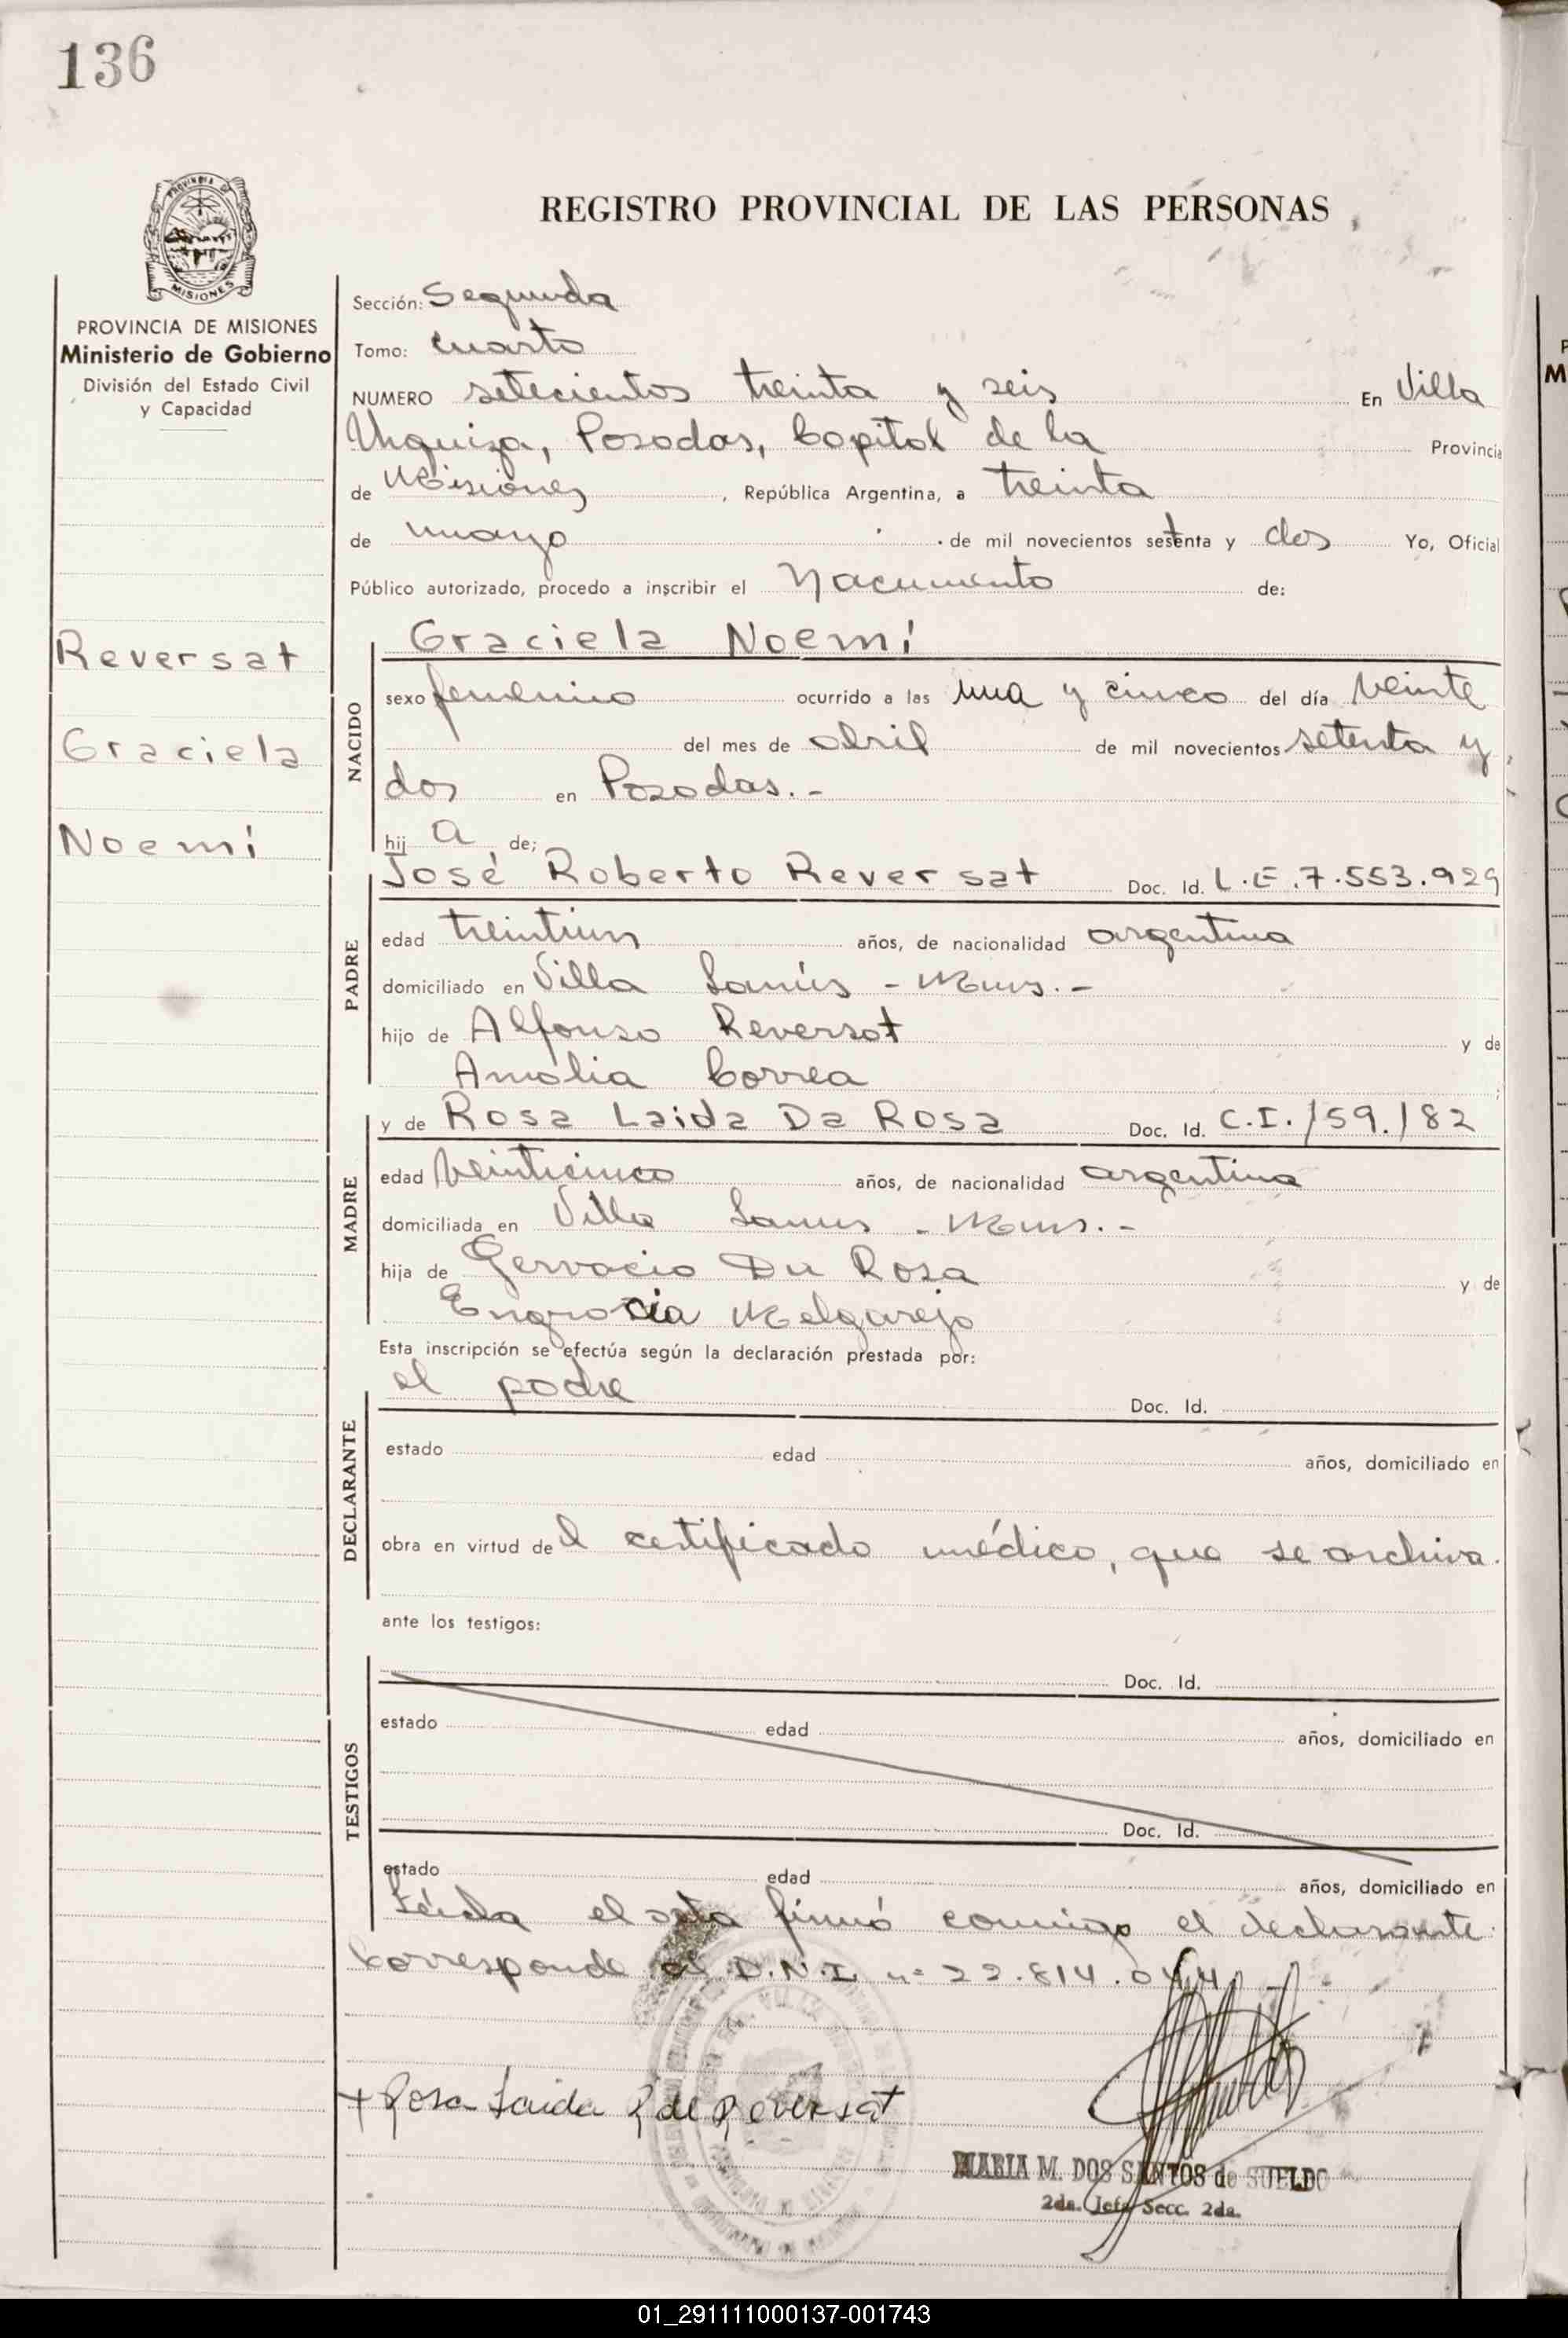 136
PROVINCIA DE
MISIONES
REGISTRO PROVINCIAL DE LAS PERSONAS
PROVINCIA DE MISIONES
Ministerio de Gobierno
División del Estado Civil
y Capacidad
Reversat
Graciela
Noemí
Sección: Segunda
Tomo: Cuarto
NUMERO setecientos treinta y seis En Villa
Urquiza, Posadas, Capital de la Provincia
de Misiones, República Argentina, a treinta
de mayo de mil novecientos setenta y dos Yo, Oficial
Público autorizado, procedo a inscribir el Nacimiento de:
NACIDO
Graciela Noemí
sexo femenino ocurrido a las una y cinco del día veinte
del mes de abril de mil novecientos setenta y
dos en Posadas.-
hija de;
PADRE
José Roberto Reversat Doc. Id. L.E.7.553.929
edad treintiun años, de nacionalidad argentina
domiciliado en Villa Lanús - Mnes.-
hijo de Alfonso Reversat y de
Amalia Correa
MADRE
y de Rosa Laida Da Rosa Doc. Id. C.I.159.182
edad veinticinco años, de nacionalidad argentina
domiciliada en Villa Lanus - Mnes.-
hija de Gervacio Da Rosa y de
Engracia Melgarejo
Esta inscripción se efectúa según la declaración prestada por:
DECLARANTE
el padre Doc. Id.
estado edad años, domiciliado en
obra en virtud del certificado médico, que se archiva.
ante los testigos:
TESTIGOS
Doc. Id.
estado edad años, domiciliado en
Doc. Id.
estado edad años, domiciliado en
Leída el acta firmó conmigo el declarante.
Corresponde al D.N.I. nº 22.814.044
+ Rosa Laida R de Reversat
MARIA M. DOS SANTOS de SUELDO
2da. Jefa Secc. 2da.
01_291111000137-001743